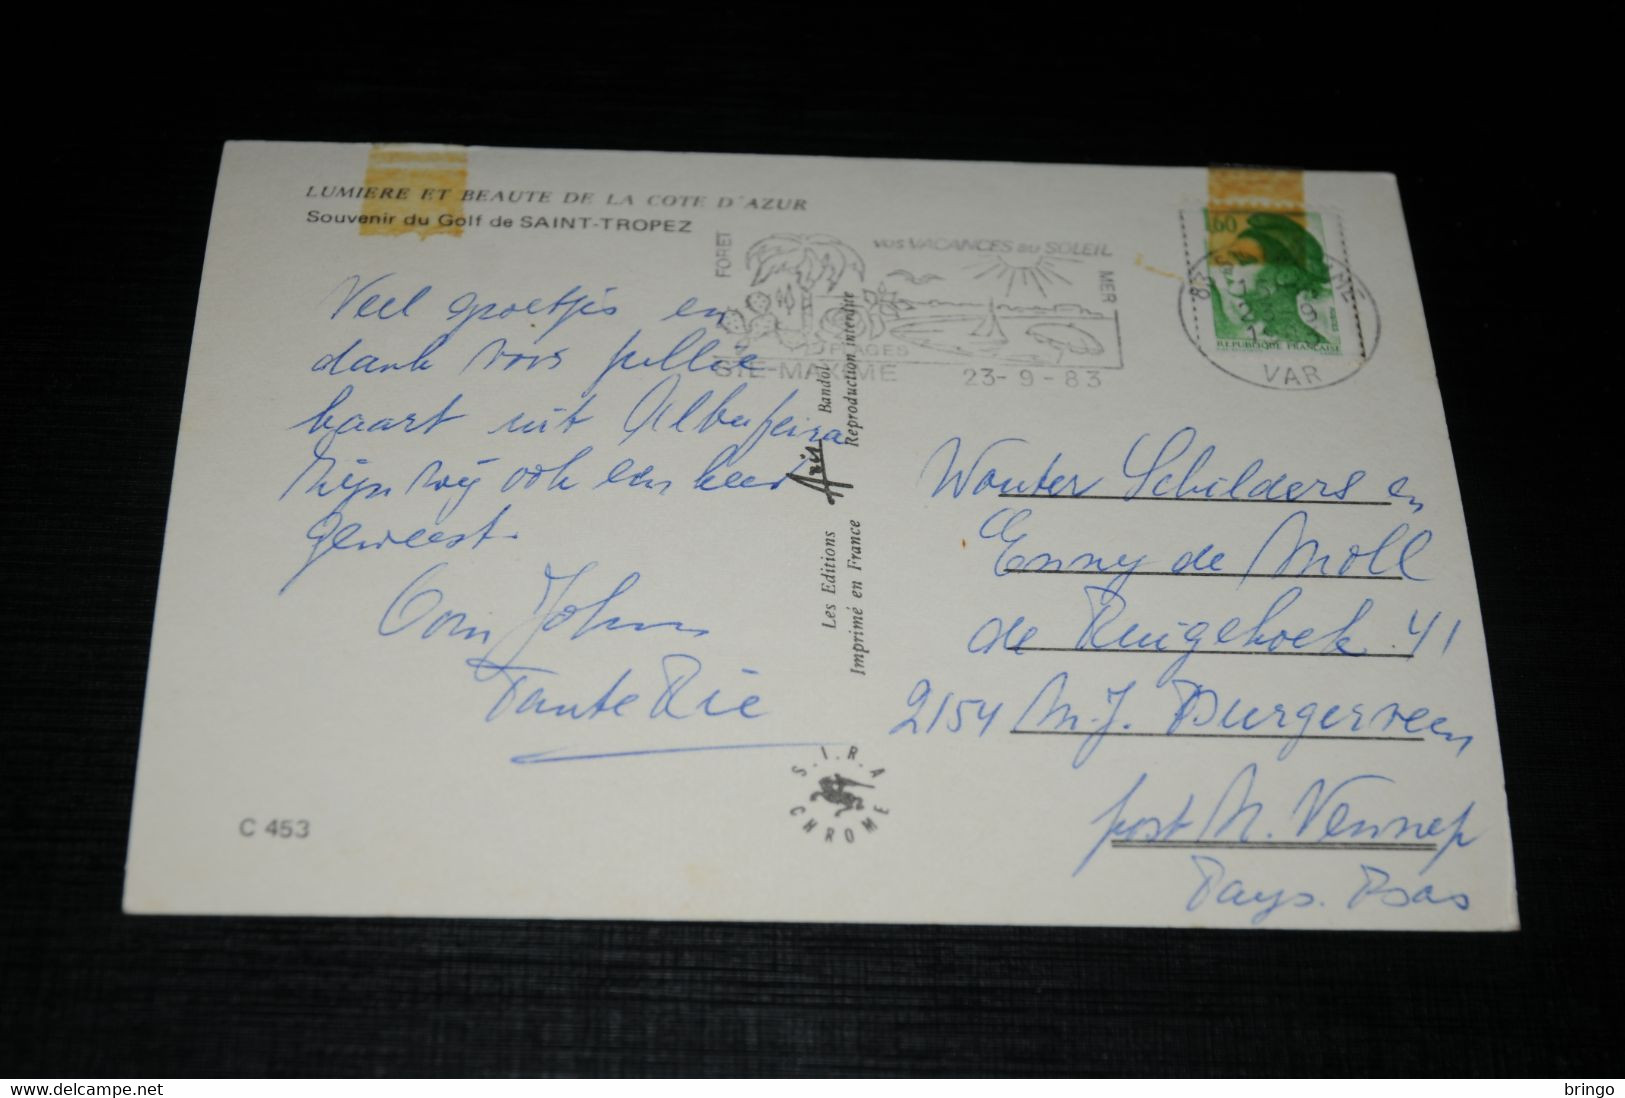 LUMIERE ET BEAUTE DE LA COTE D'AZUR
Souvenir du Golf de SAINT-TROPEZ
Veel groetjes en
dank voor jullie
kaart uit Albufeira
Zijn wij ook een keer
geweest.
Oom Johan
Tante Rie
C 453
FORET
VOS VACANCES au SOLEIL
MER
PLAGES
STE-MAXIME
23-9-83
60
REPUBLIQUE FRANÇAISE
83
VAR
Les Editions Aris Bandol
Imprimé en France Reproduction interdite
S.I.R.A
CHROME
Wouter Schilders en
Enny de Moll
de Ruigehoek 41
2154 M.J. Burgerveen
post N. Vennep
Pays. Bas
bringo